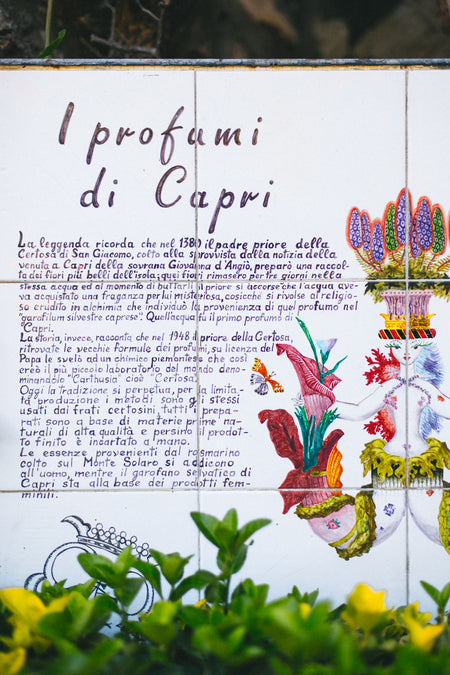 I profumi
di Capri
La leggenda ricorda che nel 1380 il padre priore della
Certosa di San Giacomo, colto alla sprovvista dalla notizia della
venuta a Capri della sovrana Giovanna d'Angiò, preparò una raccol-
ta dei fiori più belli dell'isola; quei fiori rimasero per tre giorni nella
stessa acqua ed al momento di buttarli il priore si accorse che l'acqua ave-
va acquistato una fraganza per lui misteriosa, cosicchè si rivolse al religio-
so erudito in alchimia che individuò la provenienza di quel profumo nel
"garofilum silvestre caprese". Quell'acqua fu il primo profumo di
Capri.
La storia, invece, racconta che nel 1948 il priore della Certosa,
ritrovate le vecchie formule dei profumi, su licenza del
Papa le svelò ad un chimico piemontese che così
creò il più piccolo laboratorio del mondo deno-
minandolo "Carthusia" cioè "Certosa".
Oggi la tradizione si perpetua, per la limita-
ta produzione i metodi sono gli stessi
usati dai frati certosini, tutti i prepa-
rati sono a base di materie prime na-
turali di alta qualità e persino il prodot-
to finito è incartato a mano.
Le essenze provenienti dal rosmarino
colto sul Monte Solaro si addicono
all'uomo, mentre il garofano selvatico di
Capri sta alla base dei prodotti fem-
minili.